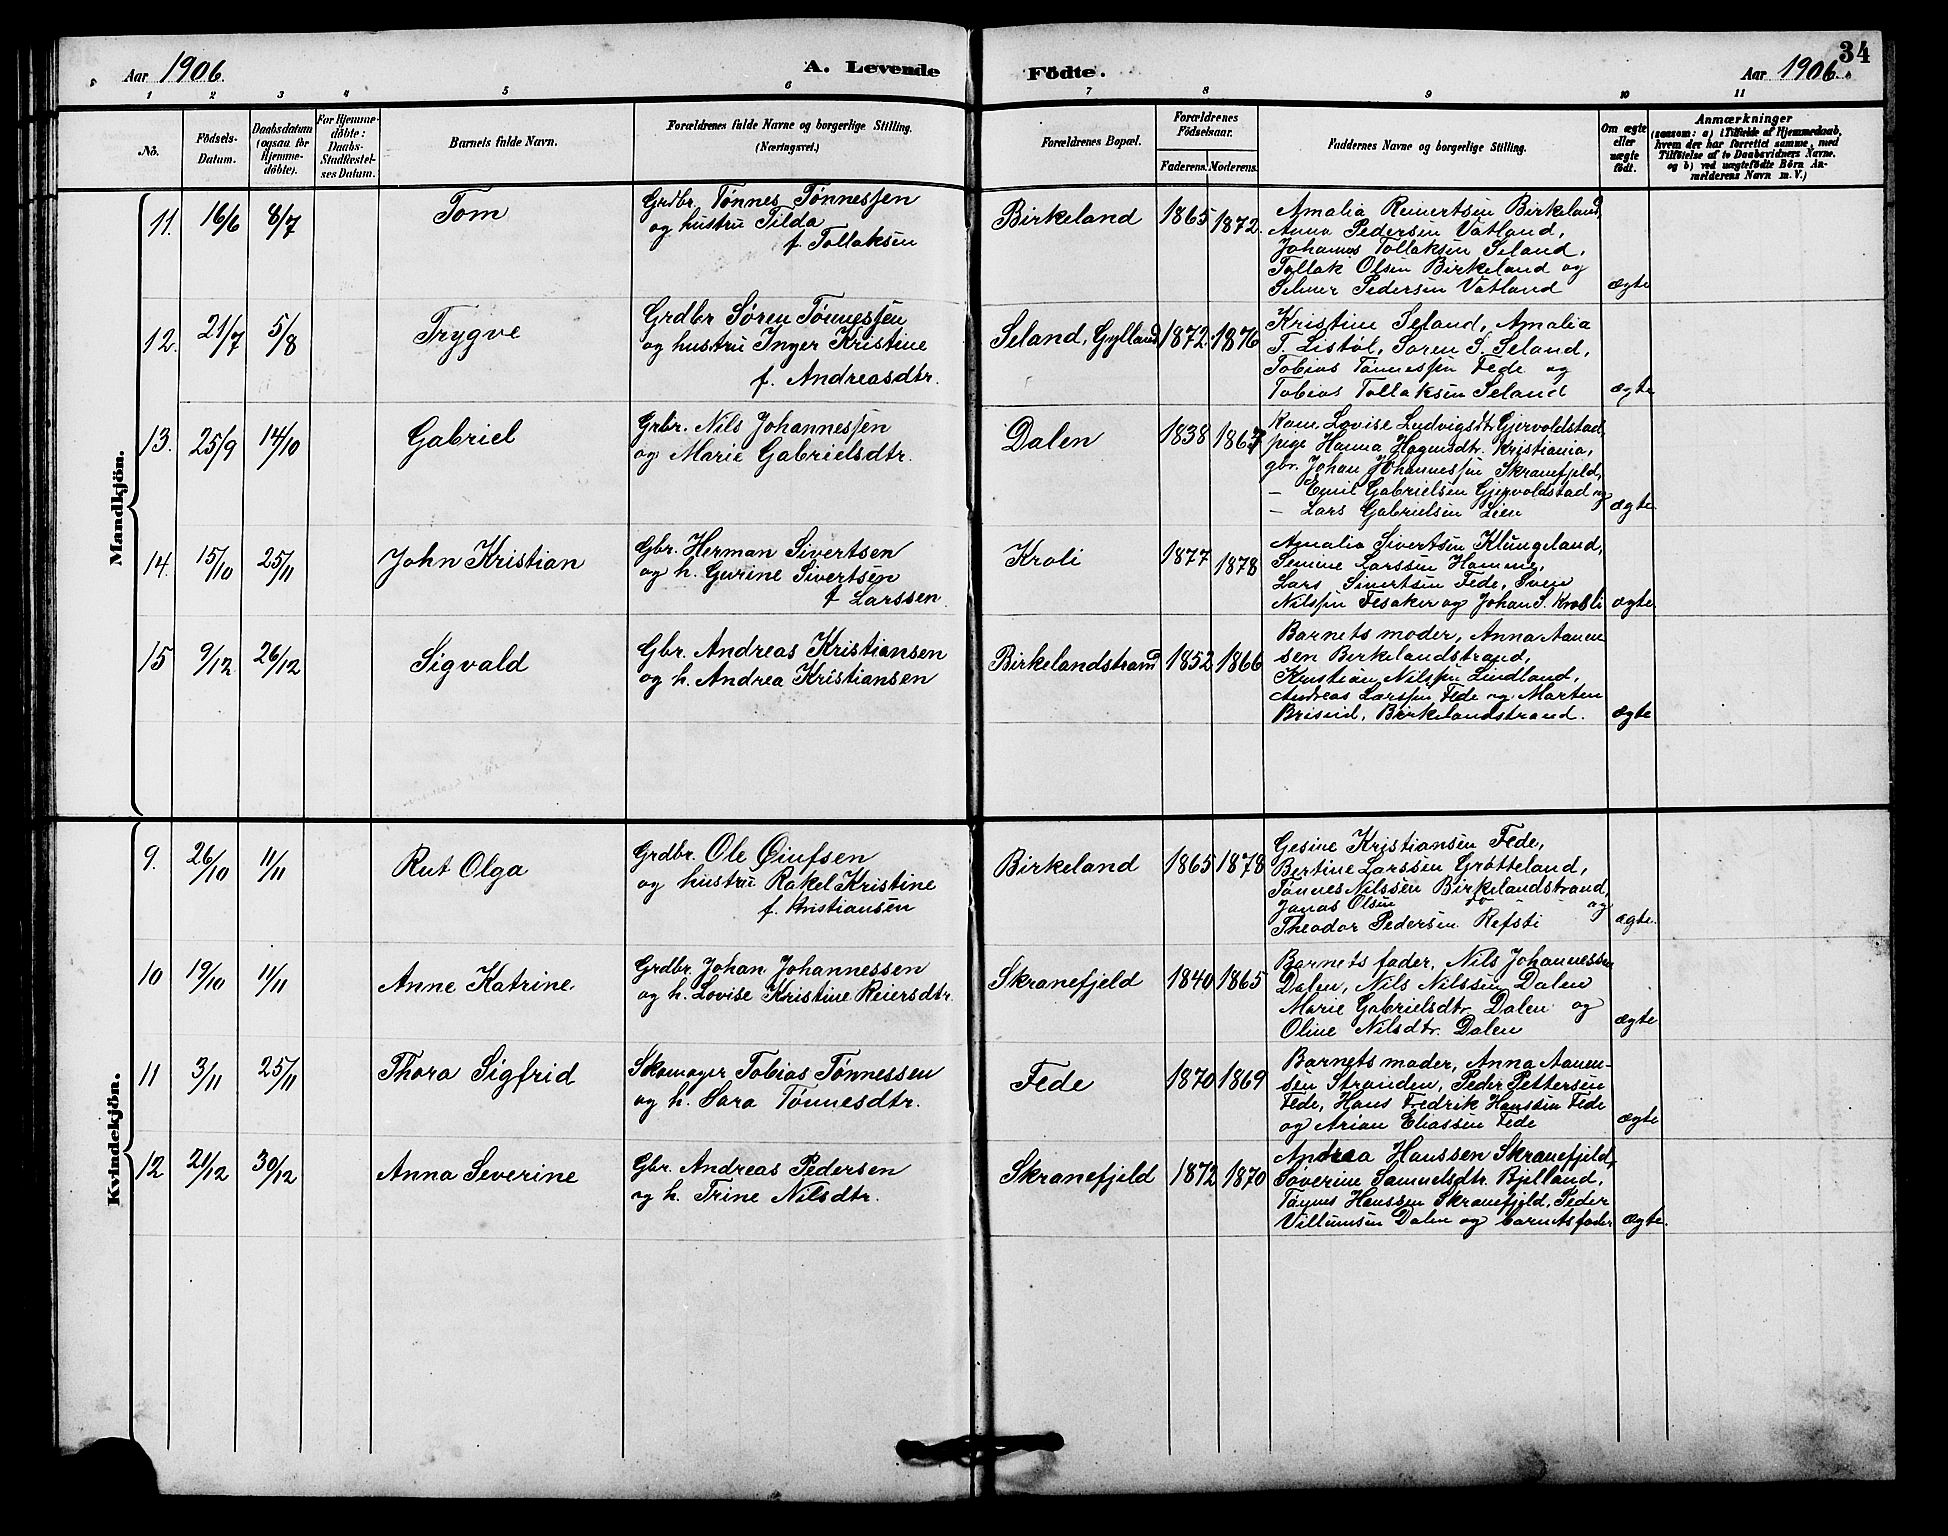 34
Aar 1906.
A. Levende Födte.
Aar 1906.
1 2 3 4 5 6 7 8 9 10 11
No.
Födsels-
Datum.
Daabsdatum
(ogsaa for
Hjemme-
döbte).
For Hjemme-
döbte:
Daabs-
Stadfæstel-
ses Datum.
Barnets fulde Navn.
Forældrenes fulde Navne og borgerlige Stilling.
(Næringsvei.)
Forældrenes Bopæl.
Forældrenes
Födselsaar.
Faderens. Moderens.
Faddernes Navne og borgerlige Stilling.
Om ægte
eller
uægte
födt.
Anmærkninger
(saasom: a) i Tilfælde af Hjemmedaab,
hvem der har forrettet samme, med
Tilföielse af to Daabsvidners Navne,
og b) ved uægtefödte Börn An-
melderens Navn m. V.)
Mandkjön.
11. 16/6 8/7 Tom
Grdbr. Tønnes Tønnessen
og hustru Tilda
f. Tollaksen
Birkeland 1865 1872.
Amalia Reinertsen Birkeland,
Anna Pedersen Vatland,
Johannes Tollaksen Seland,
Tollak Olsen Birkeland og
Selmer Pedersen Vatland
ægte
12. 21/7 5/8 Trygve
Grdbr Søren Tønnessen
og hustru Inger Kristine
f. Andreasdtr.
Seland, Gylland 1872 1876
Kristine Seland, Amalia
T. Listøl, Søren S. Seland,
Tobias Tønnessen Fede og
Tobias Tollaksen Seland
ægte
13. 25/9 14/10 Gabriel
Grbr. Nils Johannessen
og Marie Gabrielsdtr.
Dalen 1838 1867
Kone Lovise Ludvigsdtr Gjervoldstad,
pige Hanna Hagensdtr. Kristiania,
gbr. Johan Johannessen Skranefjeld,
– Emil Gabrielsen Gjervoldstad og
– Lars Gabrielsen Lien
ægte
14. 15/10 25/11 John Kristian
Gbr. Herman Sivertsen
og h. Gurine Sivertsen
f Larssen.
Kroli 1877 1878
Amalia Sivertsen Klungeland,
Semine Larssen Hamme,
Lars Sivertsen Fede, Sven
Nilssen Fesaker og Johan S. Kroli
ægte
15 9/12 26/12 Sigvald
Gbr. Andreas Kristiansen
og h. Andrea Kristiansen
Birkelandstrand 1852 1866
Barnets moder, Anna Aanen-
sen Birkelandstrand,
Kristian Nilssen Lindland,
Andreas Larssen Fede og Marten
Briseid, Birkelandstrand.
ægte
Kvindekjön.
9. 26/10 11/11 Rut Olga
Grdbr. Ole Øiufsen
og hustru Rakel Kristine
f. Kristiansen
Birkeland 1865 1878
Gesine Kristiansen Fede,
Bertine Larssen Grøtteland,
Tønnes Nilssen Birkelandstrand,
Jonas Olsen do - - og
Theodor Pedersen Refsti
ægte.
10 19/10 11/11 Anne Katrine
Grdbr. Johan Johannessen
og h. Lovise Kristine Reiersdtr.
Skranefjeld 1840 1865
Barnets fader, Nils Johannessen
Dalen, Nils Nilssen Dalen
Marie Gabrielsdtr. Dalen og
Oline Nilsdtr. Dalen
ægte
11 3/11 25/11 Thora Sigfrid
Skomager Tobias Tønnessen
og h. Sara Tønnesdtr.
Fede 1870 1869
Barnets moder, Anna Aanen-
sen Stranden, Peder Pettersen
Fede, Hans Fredrik Hanssen Fede
og Arian Eliassen Fede
ægte
12 21/12 30/12 Anna Severine
Gbr. Andreas Pedersen
og h. Trine Nilsdtr.
Skranefjeld 1872 1870
Andrea Hanssen Skranefjeld,
Søverine Samuelsdtr. Bjelland,
Tønnes Hanssen Skranefjeld, Peder
Villumsen Dalen og barnets fader
ægte.